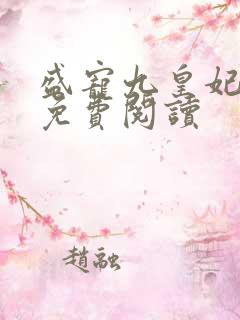 盛寵九皇妃
免費閱讀
趙融